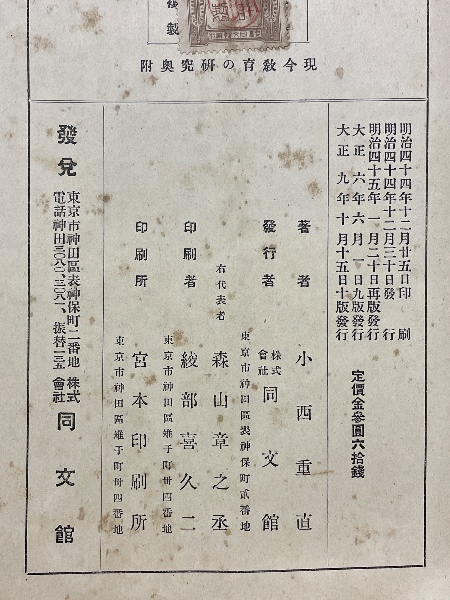 製
現今教育の研究奥附
明治四十四年十二月廿五日印刷
明治四十四年十二月三十日發行
明治四十五年一月二十日再版發行
大正六年六月一日九版發行
大正九年十月十五日十版發行
定價金參圓六拾錢
著者 小西重直
發行者 株式會社 同文館
東京市神田區表神保町貳番地
右代表者 森山章之丞
印刷者 綾部喜久二
東京市神田區雉子町卅四番地
印刷所 宮本印刷所
東京市神田區雉子町卅四番地
發兌 東京市神田區表神保町二番地 株式會社 同文館
電話神田三〇八〇、三〇八一、振替一三五